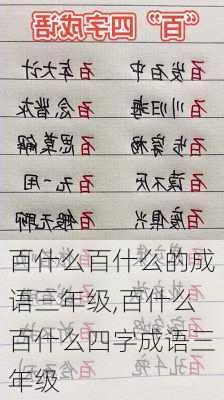 “百”四字成语
百发百中 百年大计
百川归海 百念皆灰
百步穿杨 百思莫解
百读不厌 百无一用
百废俱兴 百般无聊
百什么百什么的成
语三年级,百什么
百什么四字成语三
年级